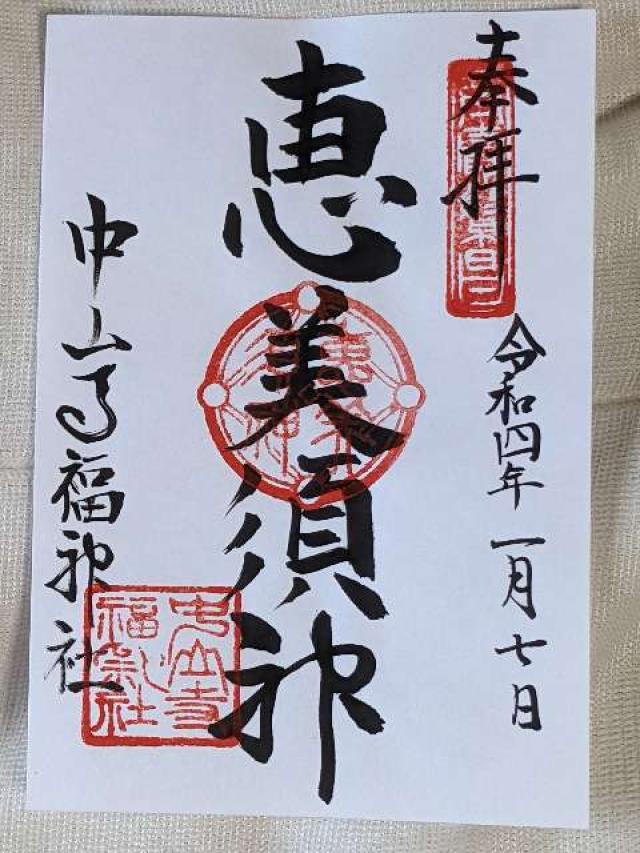 奉拝
令和四年一月七日
恵美須神
中山寺福神社
中山寺
福神社